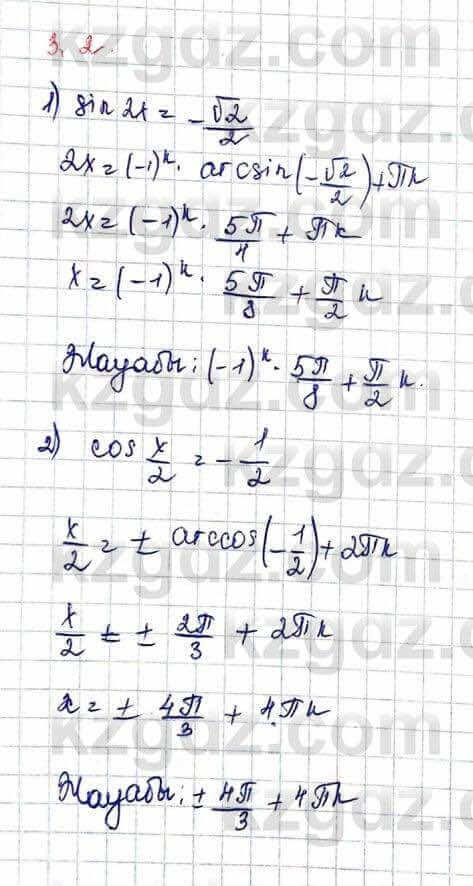 3.2.
1) sin 2x = -√2/2
2x = (-1)^k · arcsin(-√2/2) + πk
2x = (-1)^k · 5π/4 + πk
x = (-1)^k · 5π/8 + π/2 k
Жауабы: (-1)^k · 5π/8 + π/2 k.
2) cos x/2 = -1/2
x/2 = ± arccos(-1/2) + 2πk
x/2 = ± 2π/3 + 2πk
x = ± 4π/3 + 4πk
Жауабы: ± 4π/3 + 4πk
kzgdz.com